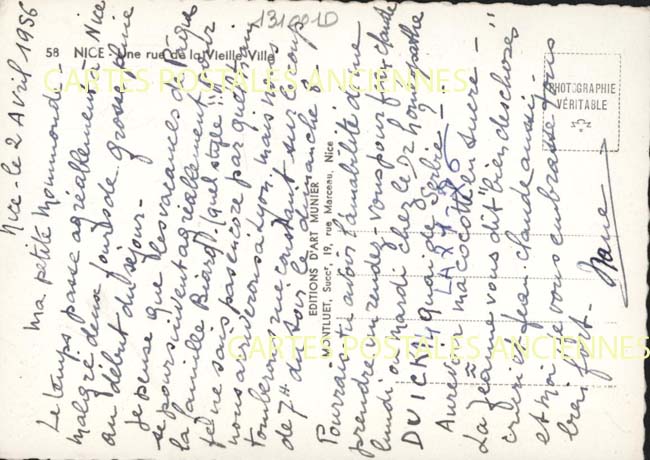 1310010
58 NICE - Une rue de la Vieille Ville
CARTES POSTALES ANCIENNES
PHOTOGRAPHIE
VÉRITABLE
EDITIONS D'ART MUNIER
MONTLUET, Succr, 19, rue Marceau, Nice
CARTES POSTALES ANCIENNES
Nice - le 2 Avril 1956
Ma petite Mommonde -
Le temps passe agréablement à Nice
malgré deux jours de grosse
au début du séjour -
je pense que les vacances de
se poursuivent agréablement pour
la famille Biard. (quel style !!)
je ne sais pas encore par quel train
nous arriverons à Lyon, mais nous
tomberons sur le coup
de 7H du soir le dimanche 8 -
Pourrais-tu avoir l'amabilité de me
prendre un rendez-vous pour J. Claude
lundi ou mardi chez le Dr homéopathe
DUICK 4 quai de Serbie ?
LA 27.86
Au revoir ma cocotte en sucre -
La Jeanne vous dit "bien des choses"
Jean-Claude aussi
et moi je vous embrasse tous
bien fort -
Nane